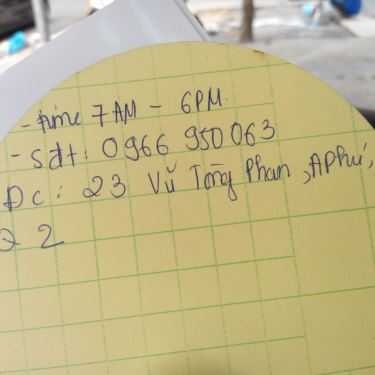 - time 7 AM - 6PM
- sdt: 0966 950 063
Đc: 23 Vũ Tông Phan, APhú,
Q 2